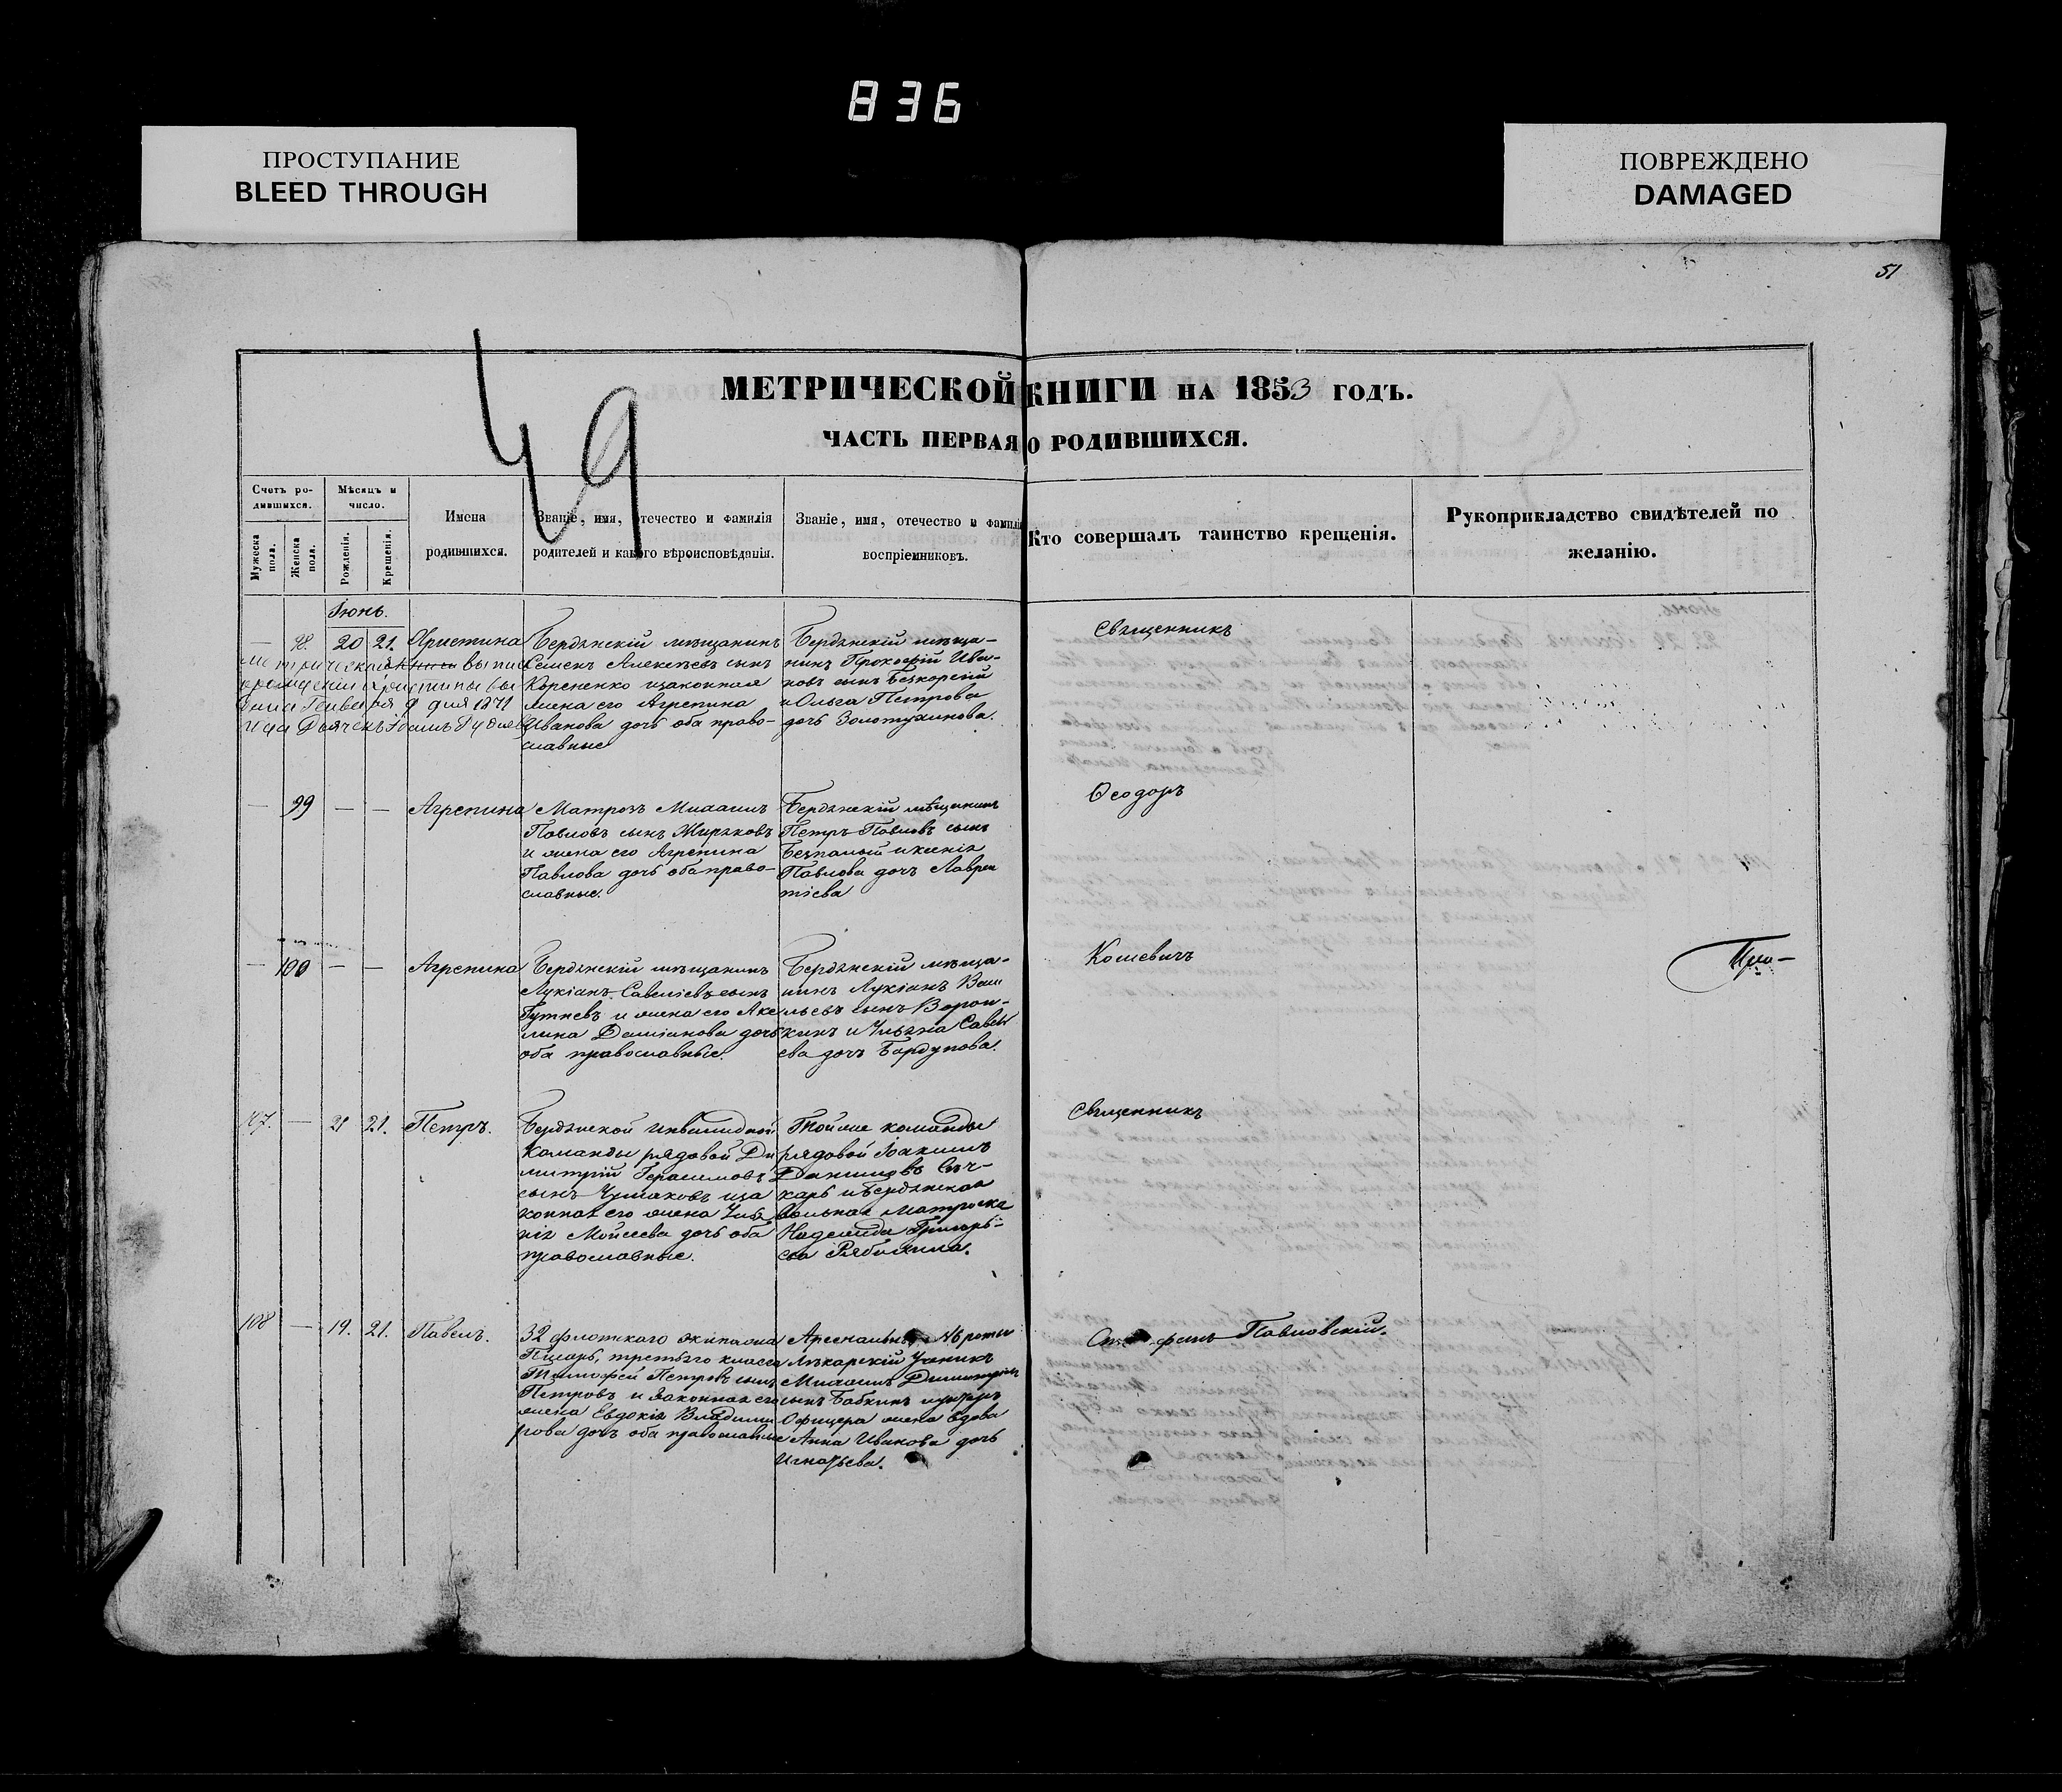 836
ПРОСТУПАНИЕ
BLEED THROUGH
ПОВРЕЖДЕНО
DAMAGED
51
49
МЕТРИЧЕСКОЙ КНИГИ НА 1853 ГОДЪ.
ЧАСТЬ ПЕРВАЯ О РОДИВШИХСЯ.
Счетъ ро-
дившихся.
Мужеска
пола.
Женска
пола.
Мѣсяцъ и
число.
Рожденія.
Крещенія.
Имена
родившихся.
Званіе, имя, отечество и фамилія
родителей и какого вѣроисповѣданія.
Званіе, имя, отечество и фамилія
воспріемниковъ.
Кто совершалъ таинство крещенія.
Рукоприкладство свидѣтелей по
желанію.
Іюнь.
— 98. 20 21. Христина
Бердянскій мѣщанинъ
Семенъ Алексѣевъ сынъ
Корененко и законная
жена его Агрепина
Иванова дочь оба право-
славные
Бердянскій мѣща-
нинъ Прокофій Ива-
новъ сынъ Безкорсій
и Ольга Петрова
дочь
Священникъ
1871
— 99 — — Агрепина
Матрозъ Михаилъ
Павловъ сынъ Жиряковъ
и жена его Агрепина
Павлова дочь оба право-
славные.
Бердянскій мѣщанинъ
Петръ Павловъ сынъ
Безпалый и Ксенія
Павлова дочь Лаврен
тіева
Ѳеодоръ
— 100 — — Агрепина
Бердянскій мѣщанинъ
Лукіанъ Савеліевъ сынъ
Гутневъ и жена его Аку
лина Даміанова дочь
оба православные.
Бердянскій мѣща-
нинъ Лукіанъ Васи
льевъ сынъ Ворон-
кинъ и Ульяна Савель
ева дочь Бардукова.
Кошевичъ
При-
107. — 21 21. Петръ.
Бердянской инвалидной
Команды рядовой Ди
митрій Герасимовъ
сынъ Чумаковъ и за
конная его жена Улія
нія Мойсеева дочь оба
православные.
Той же команды
рядовой Іоакимъ
Даниловъ
карь и Бердянская
вольная матроска
Надежда Григорь-
ева Рябихина.
Священникъ
108 — 19. 21. Павелъ.
32 флотскаго экипажа
Писарь, третьяго класса
Тимофей Петровъ сынъ
Петровъ и Законная его
жена Евдокія Владими
рова дочь оба православные
Арсенальной роты
лѣкарскій Ученикъ
Михаилъ Димитріевъ
сынъ Бабкинъ и унтеръ
Офицера жена вдова
Анна Иванова дочь
Игнатьева.
Павловскій.